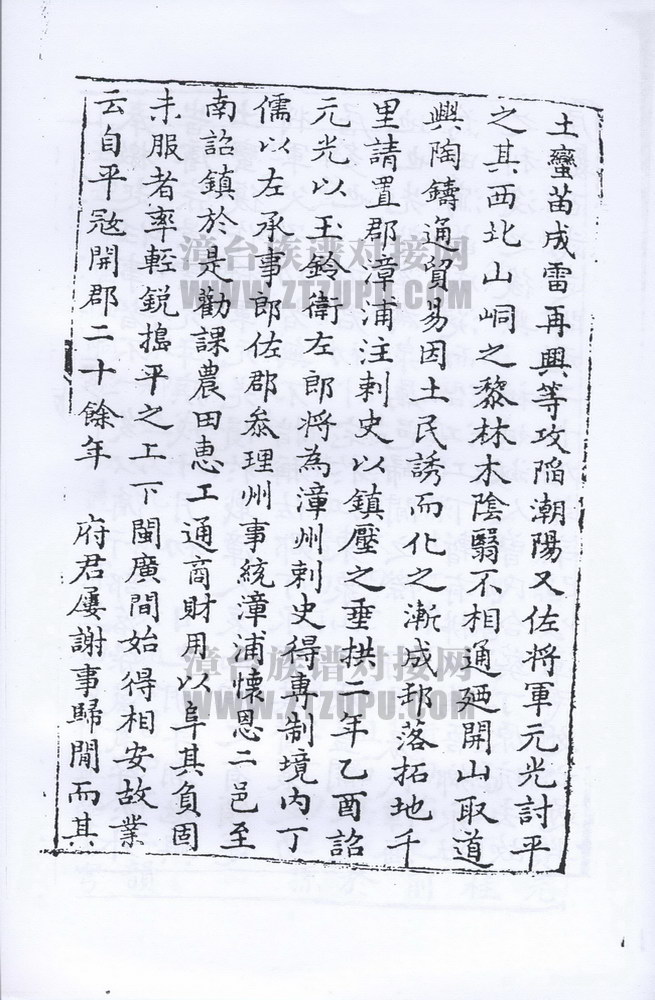 土蠻苗成雷再興等攻陷潮陽又佐將軍元光討平
之其西北山峒之黎林木陰翳不相通廼開山取道
興陶鑄通貿易因土民誘而化之漸成邨落拓地千
里請置郡漳浦注刺史以鎮壓之垂拱二年乙酉詔
元光以玉鈴衛左郎將為漳州刺史得專制境內丁
儒以左承事郎佐郡叅理州事統漳浦懷恩二邑至
南詔鎮於是勸課農田惠工通商財用以阜其負固
未服者率輕銳搗平之工下閩廣間始得相安故業
云自平寇開郡二十餘年　府君屢謝事歸閒而其
漳台族谱对接网
WWW.ZTZUPU.COM
漳台族谱对接网
WWW.ZTZUPU.COM